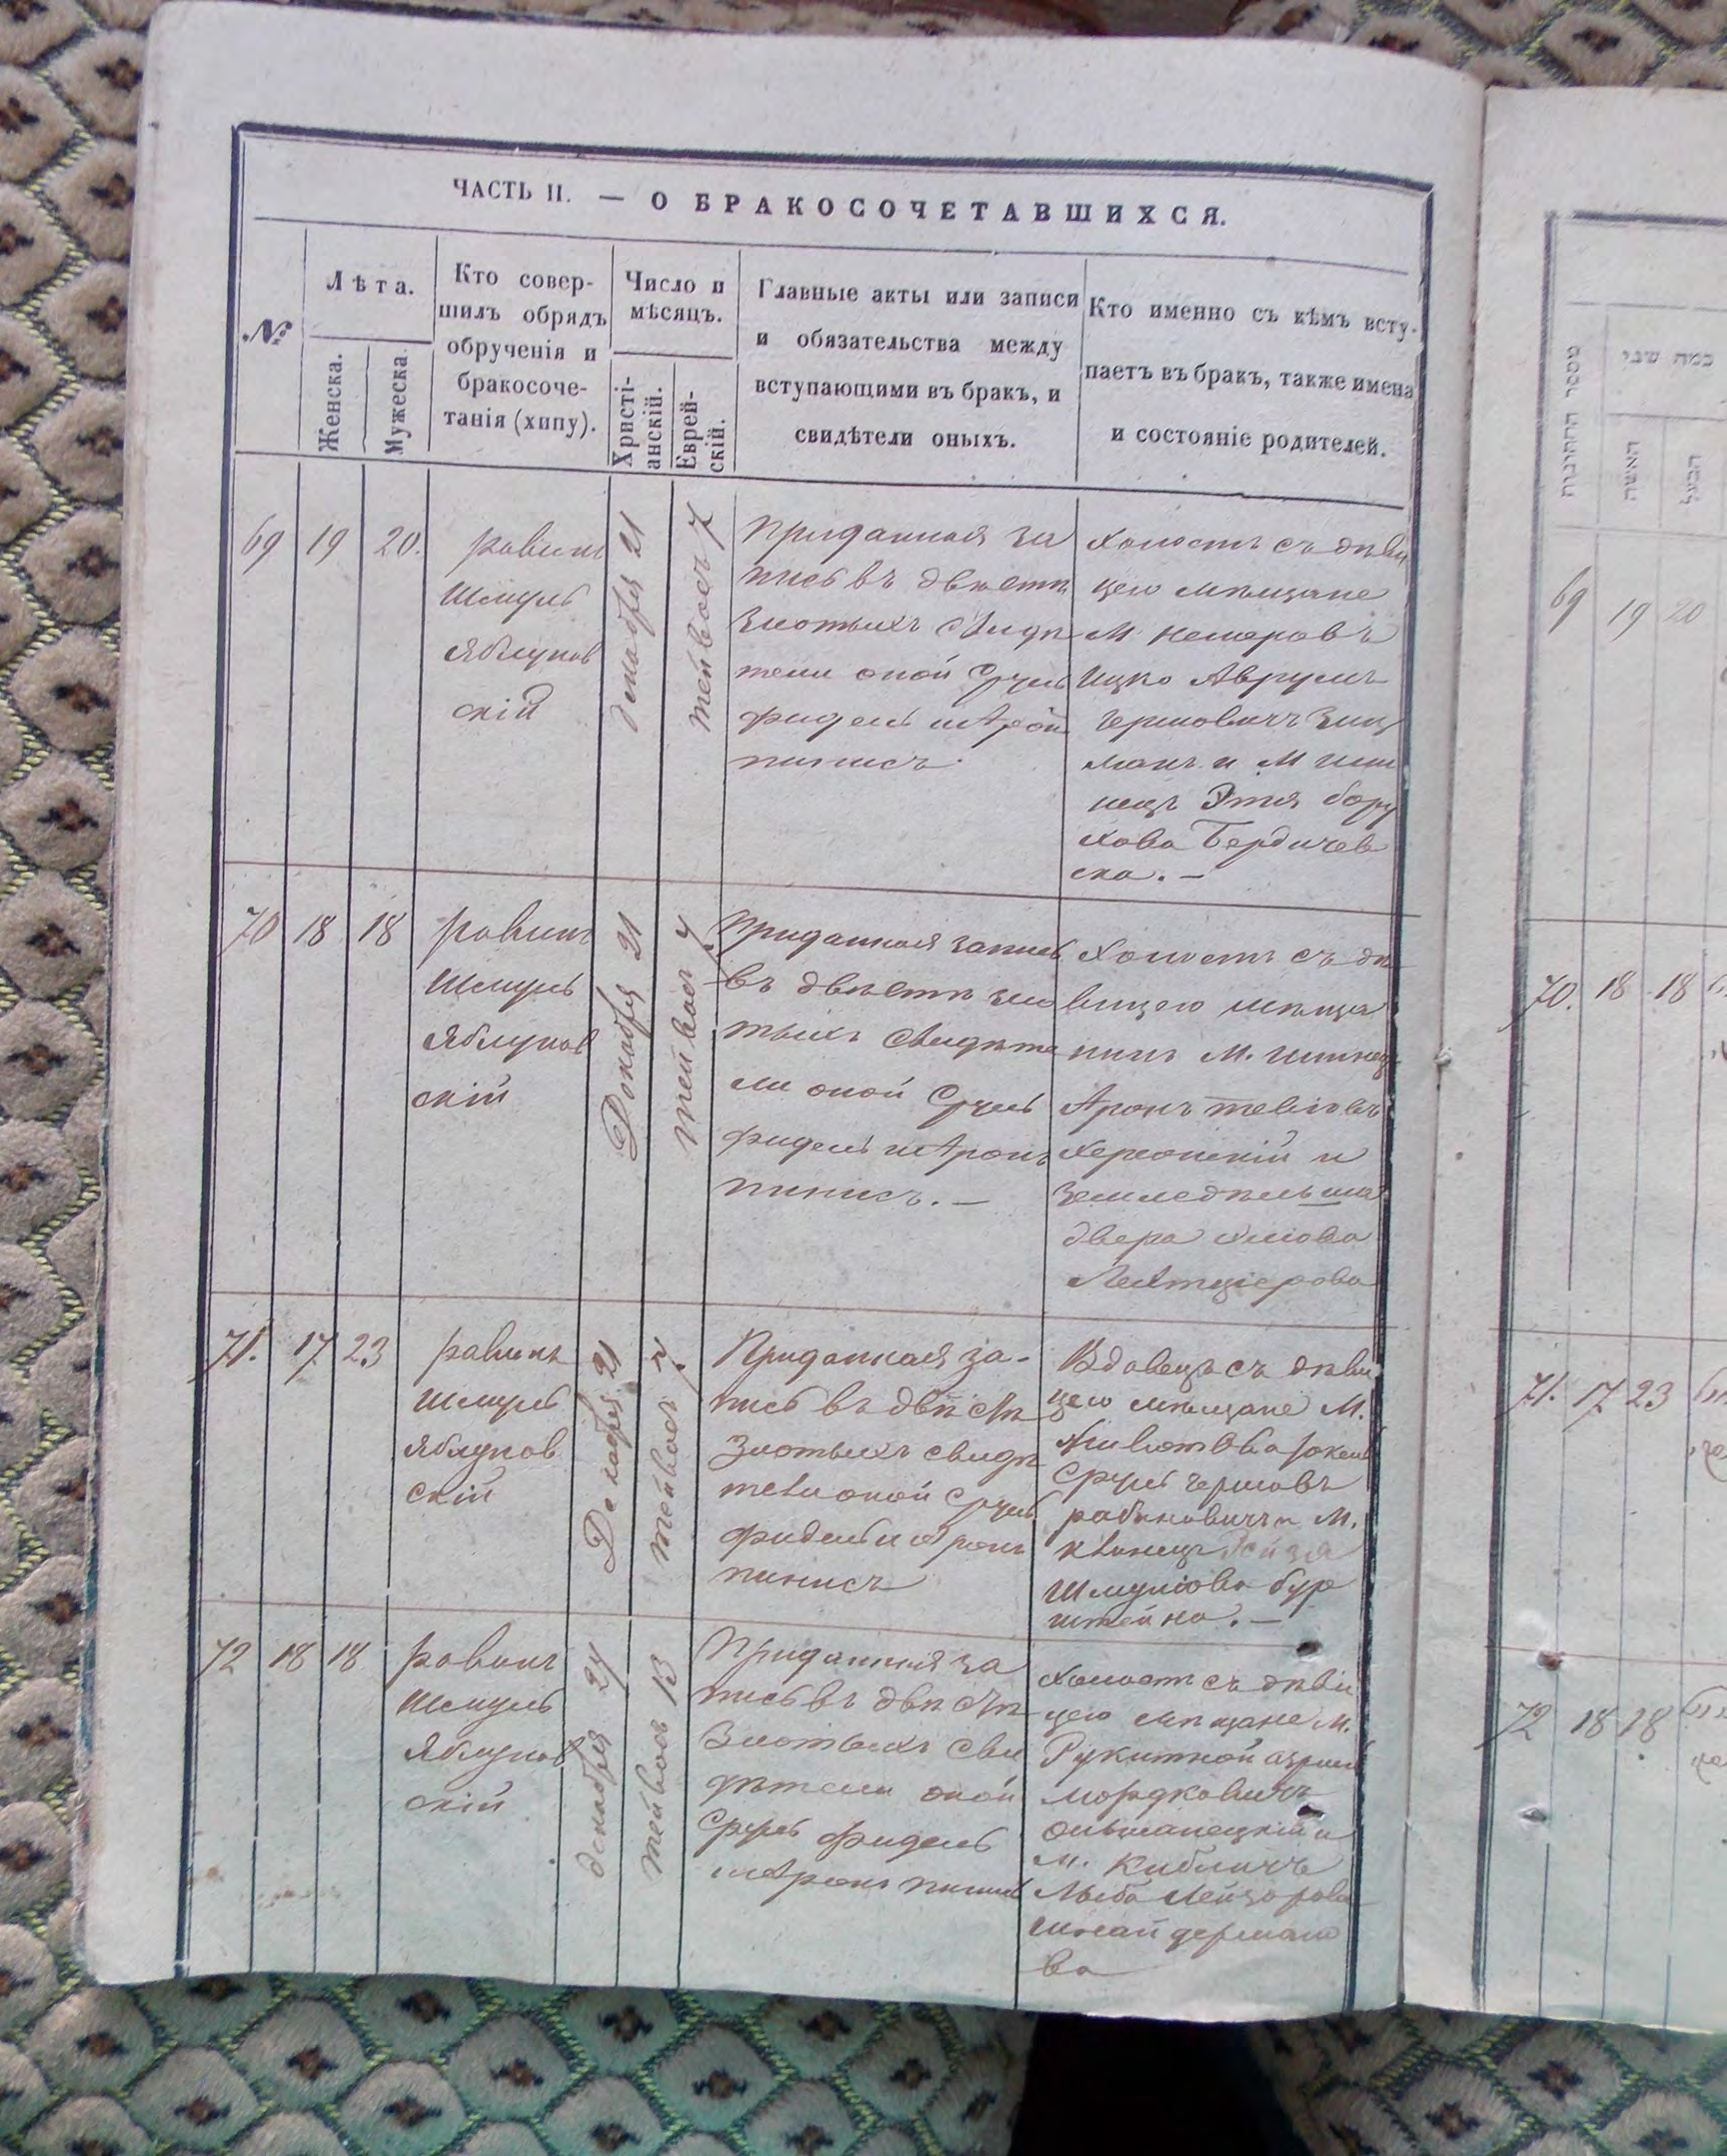 ЧАСТЬ II. — О БРАКОСОЧЕТАВШИХСЯ.
№
Лѣта.
Женска.
Мужеска.
Кто совер-
шилъ обрядъ
обрученія и
бракосоче-
танія (хипу).
Число и
мѣсяцъ.
Христі-
анскій.
Еврей-
скій.
Главные акты или записи
и обязательства между
вступающими въ бракъ, и
свидѣтели оныхъ.
Кто именно съ кѣмъ всту-
паетъ въ бракъ, также имена
и состояніе родителей.
69
19
20.
равинъ
Шмуль
Яблунов
скій
декабря 21
тейвось 7
Приданная за
пись въ двѣстѣ
Злотыхъ свидѣ
тели оной Сруль
фидель и Арон
пинись
холость съ дѣви
цею мѣщане
М. немеровъ
Ицко Аврумъ
Гершовичъ Зин
манъ и М
нецъ Этя бору
хова Бердичев
ска. —
70
18
18
равинъ
Шмуль
Яблунов
скій
Декабря 21
тейвось 7
Приданная запись
въ двѣстѣ зло
тыхъ свидѣте
ли оной Сруль
фидель и Аронъ
пинись. —
Холость съ дѣ
вицею мѣща
нинъ М.
Аронъ
херсонскій и
земледѣльша
двера
71.
17
23
равинъ
Шмуль
Яблунов
скій
Декабря 21
тейвось 7.
Приданная за-
пись въ двѣ стѣ
Злотыхъ свидѣ
тели оной Сруль
фидель и Аронъ
пинись
Вдовецъ съ дѣви
цею мѣщане М.
Животовка
Сруль Гершовъ
рабиновичъ и М.
Шмулiова бур
штейна. —
72
18
18
равинъ
Шмуль
Яблунов
скій
декабря 27
тейвось 13
Приданная за
пись въ двѣ стѣ
Злотыхъ сви
дѣтели оной
Сруль фидель
и Аронъ пинись
холость съ дѣви
цею мѣщане М.
Рукитной
мордковичъ
ольшанецкій и
М. Кибличъ
Лыба Лейзорова
шнайдермано
ва
מספר החתונות
כמה שני
האשה
הבעל
69
19
20
70.
18
18
71.
17
23
72
18
18